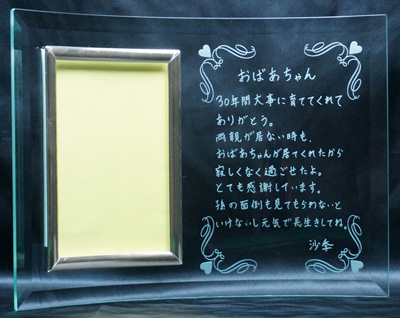 おばあちゃん
30年間大事に育ててくれて
ありがとう。
両親が居ない時も、
おばあちゃんが居てくれたから
寂しくなく過ごせたよ。
とても感謝しています。
孫の面倒も見てもらわないと
いけないし元気で長生きしてね。
沙季